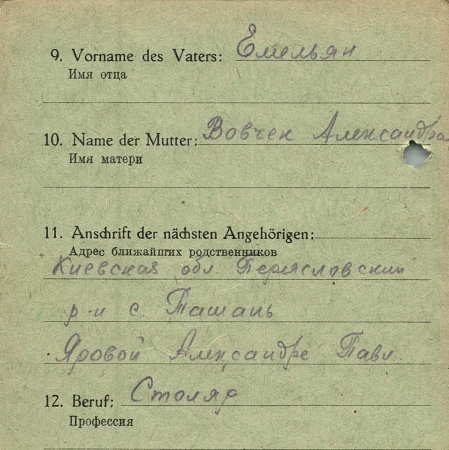 9. Vorname des Vaters: Емельян
Имя отца
10. Name der Mutter: Вовчек Александра
Имя матери
11. Anschrift der nächsten Angehörigen:
Адрес ближайших родственников
Киевская обл. Переясловский
р-н с. Ташань
Яровой Александре Павл.
12. Beruf: Столяр
Профессия